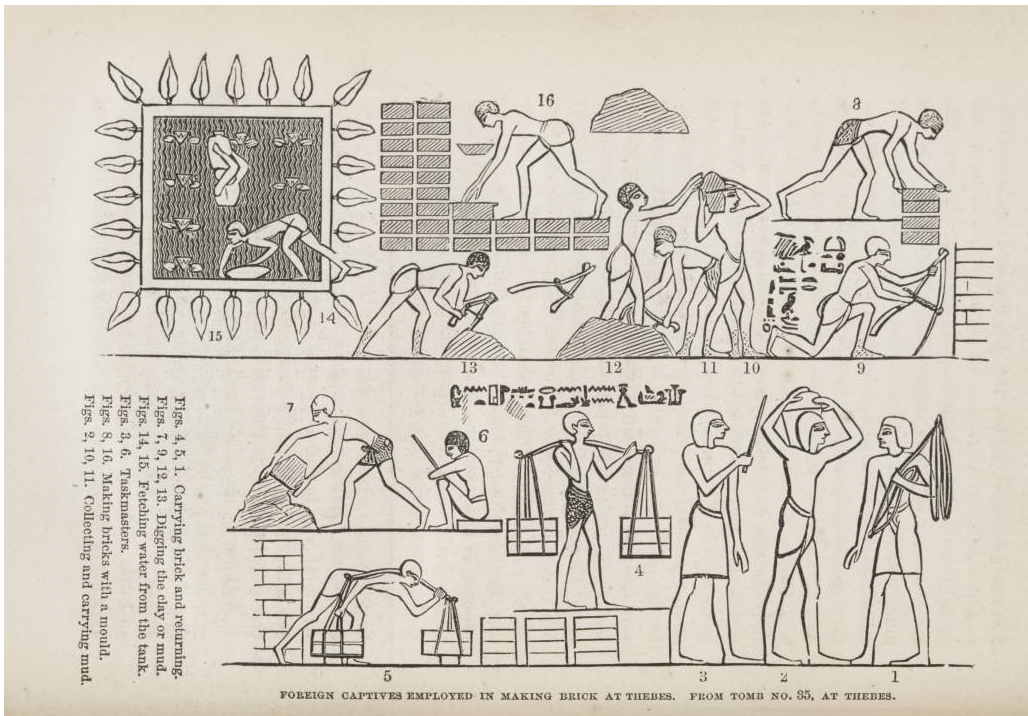 16
8
14
15
13
12
11
10
9
7
6
4
Figs. 4, 5, 1. Carrying brick and returning.
Figs. 7, 9, 12, 13. Digging the clay or mud.
Figs. 14, 15. Fetching water from the tank.
Figs. 3, 6. Taskmasters.
Figs. 8, 16. Making bricks with a mould.
Figs. 2, 10, 11. Collecting and carrying mud.
5
3
2
1
FOREIGN CAPTIVES EMPLOYED IN MAKING BRICK AT THEBES. FROM TOMB NO. 35, AT THEBES.